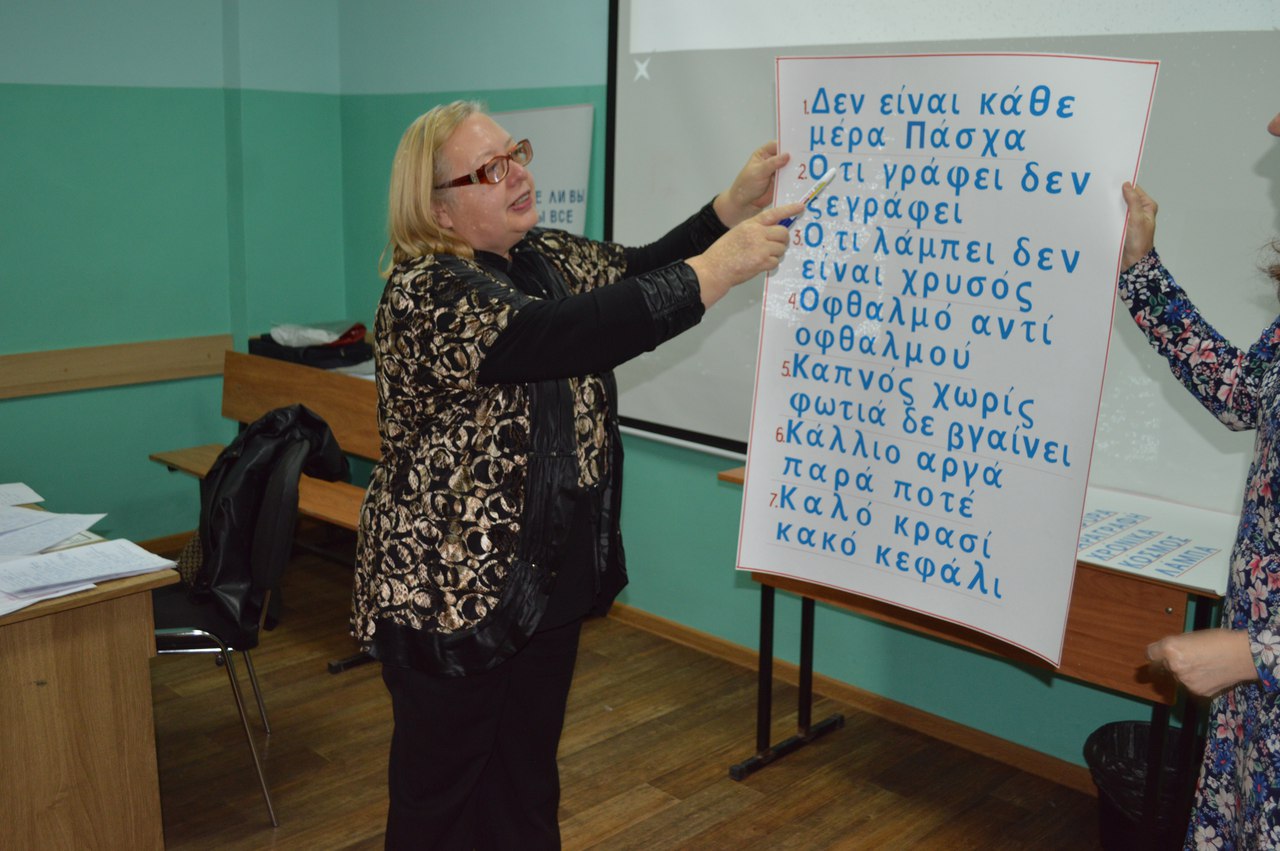 Е ЛИ ВЫ
Ы ВСЕ
1. Δεν είναι κάθε
μέρα Πάσχα
2. Ο τι γράφει δεν
ξεγράφει
3. Ο τι λάμπει δεν
είναι χρυσός
4. Οφθαλμό αντί
οφθαλμού
5. Καπνός χωρίς
φωτιά δε βγαίνει
6. Κάλλιο αργά
παρά ποτέ
7. Καλό κρασί
κακό κεφάλι
ΧΡΟΝΙΚΑ
ΚΟΣΜΟΣ
ΛΑΜΠΑ